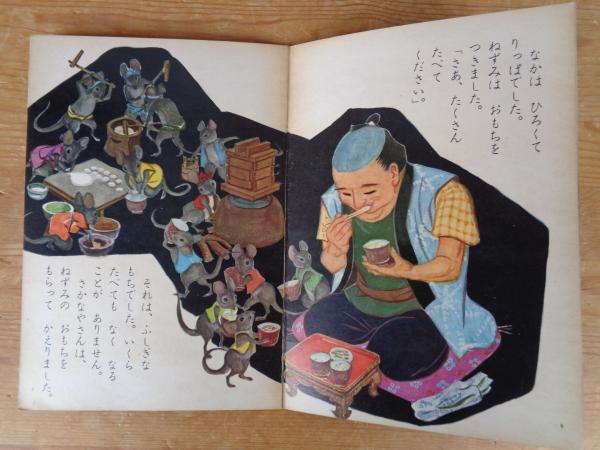 なかは ひろくて
りっぱでした。
ねずみは おもちを
つきました。
「さあ、たくさん
たべて
ください」。
それは、ふしぎな
もちでした。いくら
たべても なくなる
ことが ありません。
さかなやさんは、
ねずみの おもちを
もらって かえりました。